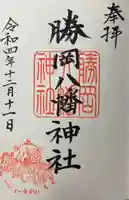 奉拝
勝岡八幡神社
勝岡
神社
令和四年十二月十一日